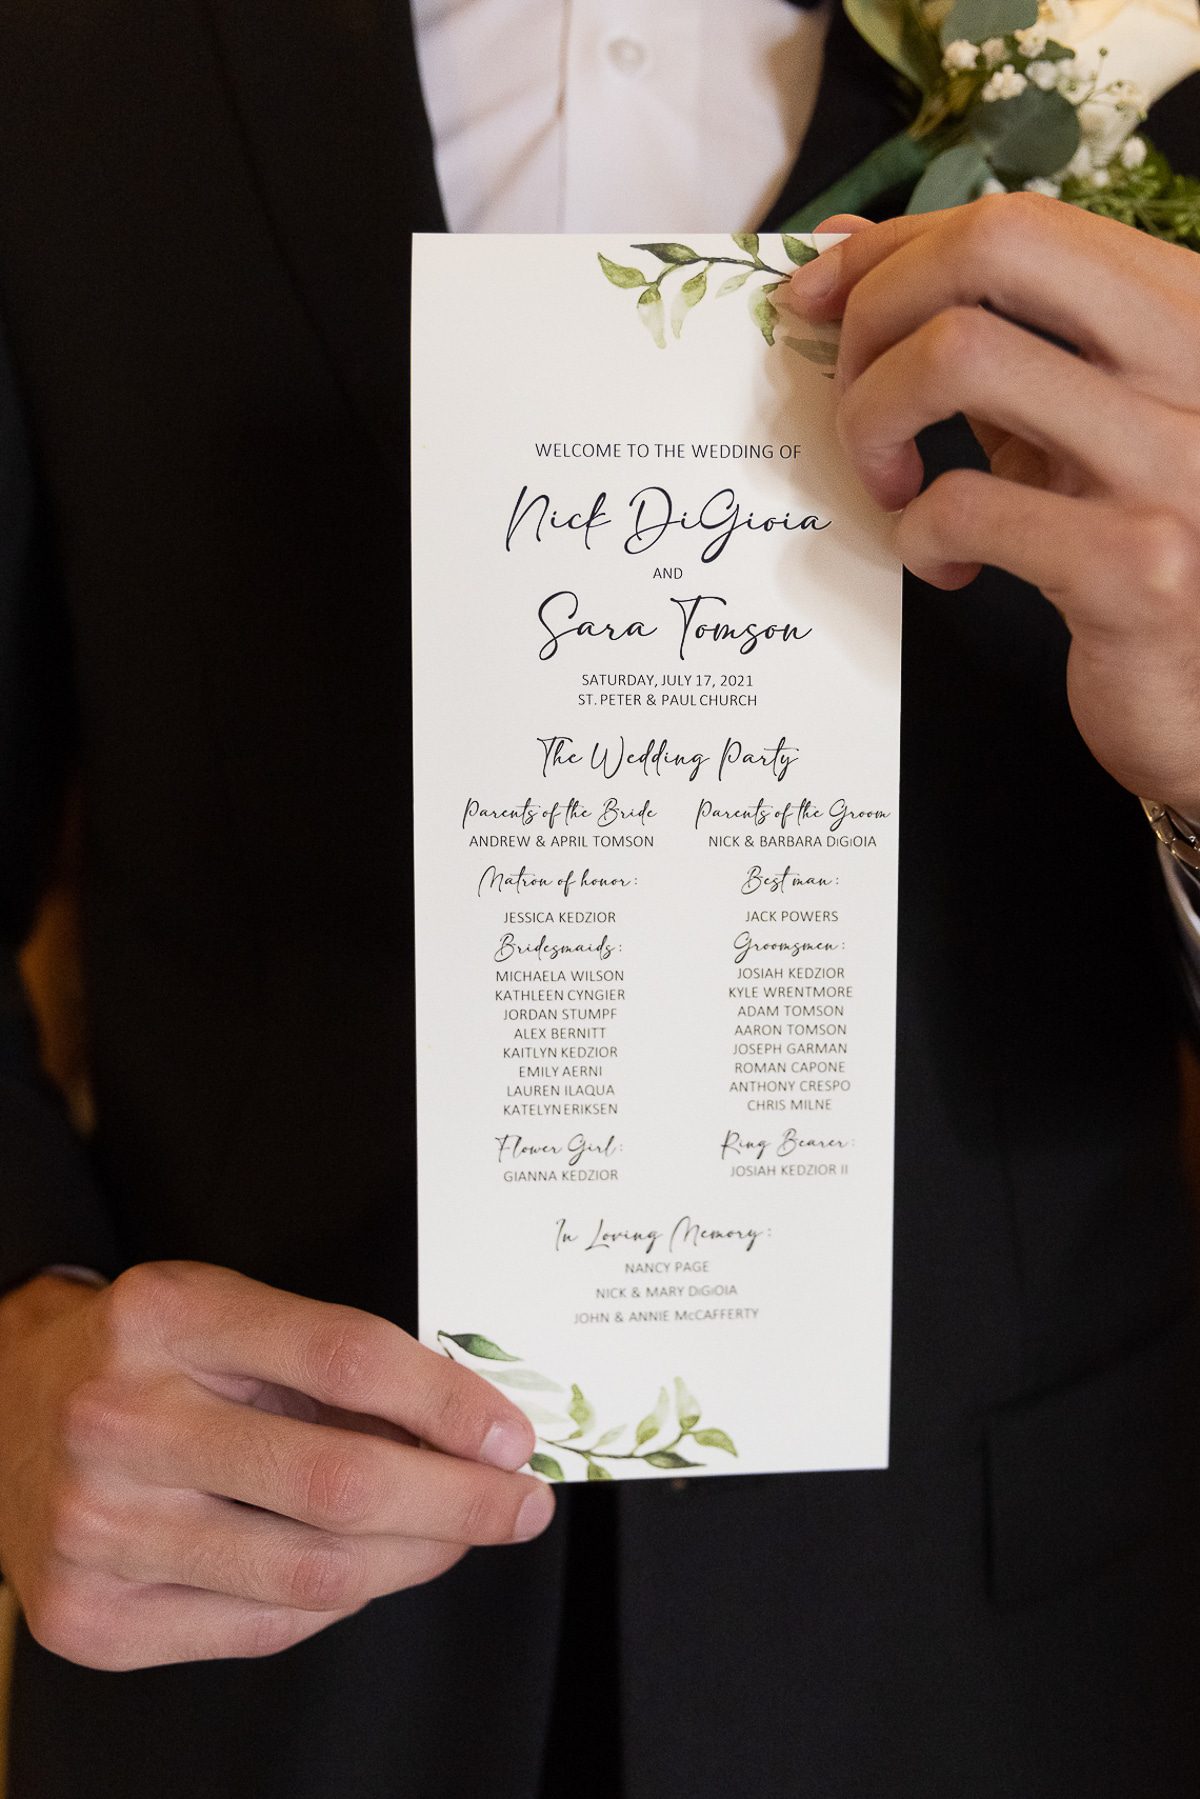 WELCOME TO THE WEDDING OF
Nick DiGioia
AND
Sara Tomson
SATURDAY, JULY 17, 2021
ST. PETER & PAUL CHURCH
The Wedding Party
Parents of the Bride
ANDREW & APRIL TOMSON
Matron of honor:
JESSICA KEDZIOR
Bridesmaids:
MICHAELA WILSON
KATHLEEN CYNGIER
JORDAN STUMPF
ALEX BERNITT
KAITLYN KEDZIOR
EMILY AERNI
LAUREN ILAQUA
KATELYN ERIKSEN
Flower Girl:
GIANNA KEDZIOR
Parents of the Groom
NICK & BARBARA DiGiOIA
Best man:
JACK POWERS
Groomsmen:
JOSIAH KEDZIOR
KYLE WRENTMORE
ADAM TOMSON
AARON TOMSON
JOSEPH GARMAN
ROMAN CAPONE
ANTHONY CRESPO
CHRIS MILNE
Ring Bearer:
JOSIAH KEDZIOR II
In Loving Memory:
NANCY PAGE
NICK & MARY DiGiOIA
JOHN & ANNIE McCAFFERTY